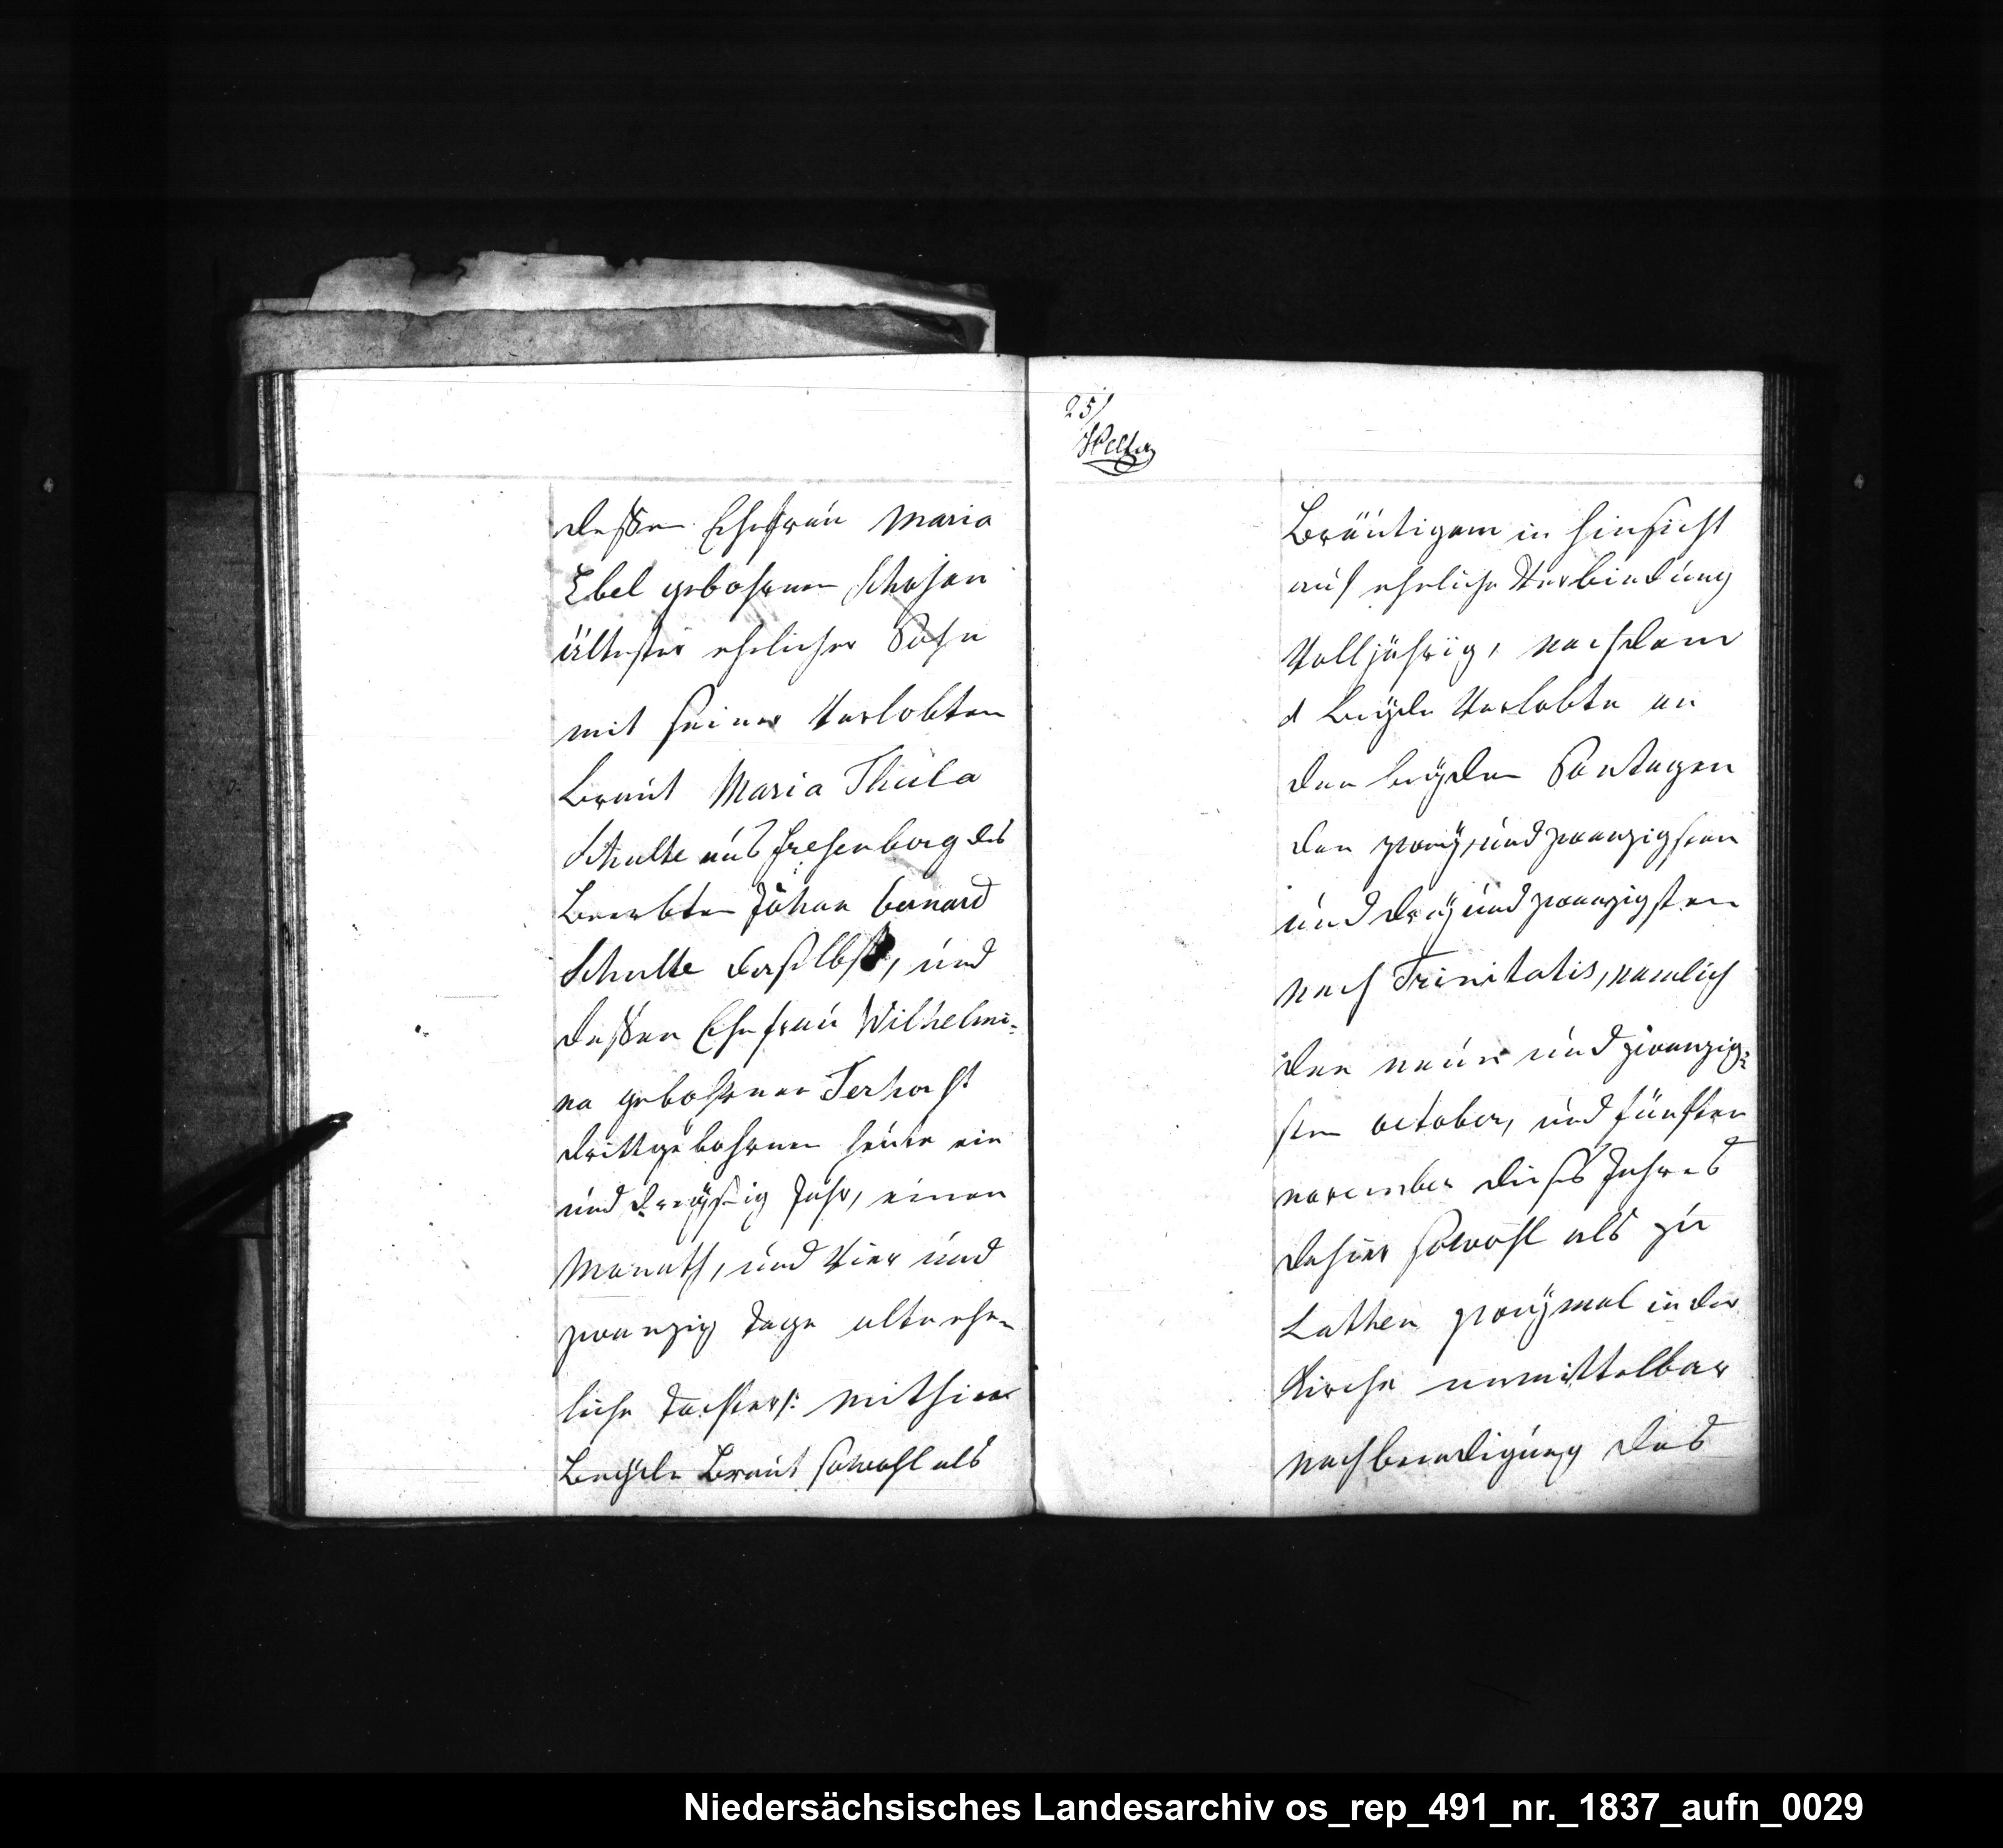 deßen Ehefrau Maria
Ebel gebohrnen Schejen
ältester ehelicher Sohn
mit seiner Verlobten
Braut Maria Thula
Schulte aus Fresenborg des
Beerbten Johan bernard
Schulte daselbst, und
deßen Ehefrau Wilhelmi-
na gebohrner Terhorst
drittgebohrnen heute ein
und dreÿßig Jahr, einen
Monath, und Vier und
zwanzig Tage alte ehe-
liche Tochter/: mithin
BeÿdeBraut sowohl als
25/
Bräutigam in hinsicht
auf eheliche Verbindung
Volljährig, nachdem
d Beÿde Verlobte an
den beÿden Sontagen
den zweÿ, und zwanzigsten
und dreÿ und zwanzigsten
nach Trinitatis, nemlich
den neun und zwanzig-
sten october, und fünften
november dieses Jahres
dahier sowohl als zu
Lathen zweÿmal in der
Kirche unmittelbar
nach beendigung des
Niedersächsisches Landesarchiv os_rep_491_nr._1837_aufn_0029